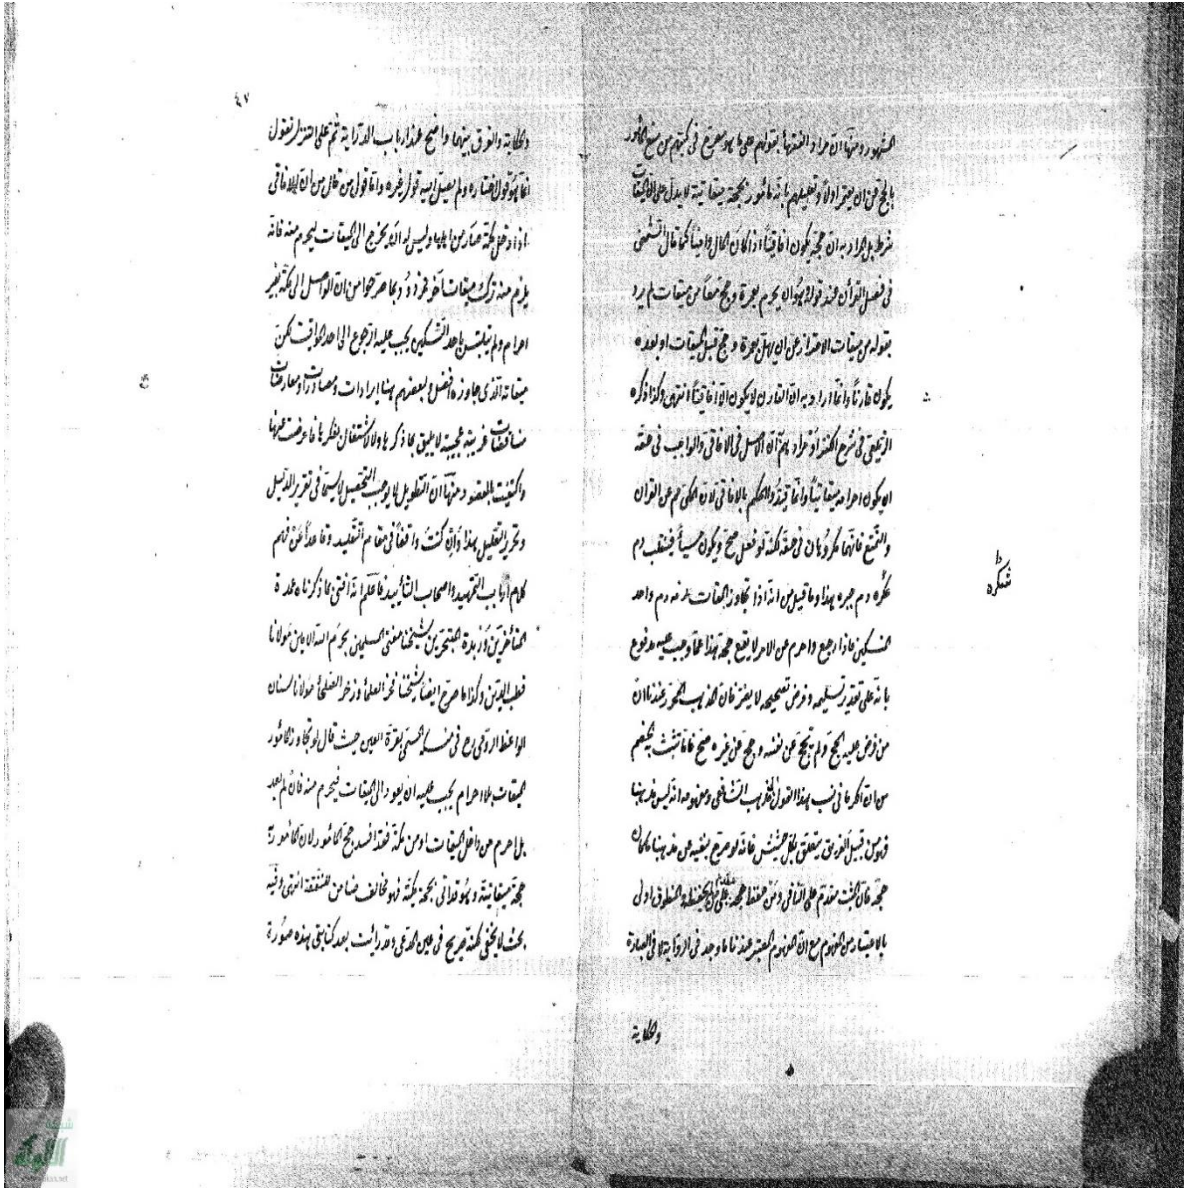 المشهور ومنها ان مراد الفقهاء بقولهم على ما هو مصرح في كتبهم من منع المأمور
بالحج من ان يعتمر اولاً وتعليلهم بانه مأمور بحجة ميقاتية لا يدل على ان الميقات
شرط بل المراد به ان حجه يكون آفاقيا اذا كان الحال واحدا كما قال الشمني
في فصل القرآن عند قوله هو ان يحرم بعمرة وحج معاً من ميقات لم يرد
بقوله من ميقات الاحتراز عن ان يهل بعمرة وحج قبل الميقات او بعده
يكون قارناً وانما اراد به ان القارن لا يكون الا آفاقياً انتهى وكذا ذكره
الزيلعي في شرح الكنز او مرادهم ان الاصل في الآفاقي والواجب في حقه
ان يكون احرامه ميقاتياً وانما قيد الحكم بالآفاقي لان المكي من القران
والتمتع فانهما مكروهان في حقه لكنه لو فعل صح ويكون مسيئاً فينقلب دم
شكره دم جبره هذا وما قيل من انه اذا تجاوز الميقات لزمه دم واحد
النسكين فاذا رجع واحرم عن الامر لا يقع حجه هذا عما وجب عليه مدفوع
بانه على تقدير تسليمه وفرض تصحيحه لا يضر فان المذهب المحرر عندنا ان
من فرض عليه الحج ولم يحج عن نفسه وحج عن غيره صح
من ان الكرماني نسب هذا القول لمذهب الشافعي ومفهومه انه ليس مذهبنا
فهو من قبيل الغريق يتعلق بكل حشيش فانه لو صرح بنفيه عن مذهبنا
حجة فان المثبت مقدم على النافي ومن حفظ حجة على من لم يحفظ والمنطوق اولى
بالاعتبار من المفهوم مع ان المفهوم المعتبر عندنا ما وجد في الرواية لا في العبارة
والحكاية
شكره
٤٧
والحكاية والفرق بينهما واضح عند ارباب الدراية ثم على التنزل نقول
انما هو قول مختاره ولم يصل اليه قول غيره واما قول من قال من ان الآفاقي
اذا دخل مكة صار من اهلها وليس له ان يخرج الى الميقات ليحرم منه فانه
يلزم منه ترك ميقات آخر فمردود بما صرحوا من ان الواصل الى مكة بغير
احرام ولم يتلبس باحد النسكين يجب عليه الرجوع الى احد المواقيت لكن
ميقاته الذي جاوزه افضل ولبعضهم هنا ايرادات ومصادرات ومعارضات
مناقضات غريبة عجيبة لا يليق بنا ذكرها ولا الاشتغال بفكرها فاعرضت عنها
واكتفيت بالمقصود منها ان التطويل لا يوجب التحصيل لا سيما في تقرير الدليل
وتحرير التعليل هذا وان كنت واقفاً في مقام التقليد وقاعداً عن فهم
كلام ارباب التمهيد واصحاب التأييد فاعلم انه افتى بما ذكرناه عمدة
المتأخرين وزبدة المتبحرين شيخنا مفتي المسلمين بحرم الله الامين مولانا
قطب الدين وكذا ما صرح ايضا شيخنا فخر العلماء وذخر الصلحاء مولانا سنان
الواعظ الرومي رح في منسكه المسمى بقرة العين حيث قال لو تجاوز المأمور
الميقات بلا احرام يجب عليه ان يعود الى الميقات فيحرم منه فان لم يعد
بل احرم من داخل الميقات او من مكة فقد افسد حج المأمور لان المأمور به
حجة ميقاتية وهو قد اتى بحجة مكية فهو مخالف ضامن للنفقة انتهى وفيه
بحث لا يخفى لكنه صريح في عين المدعى وقد رأيت بعد كتابتي هذه صورة
شبكة
الألوكة